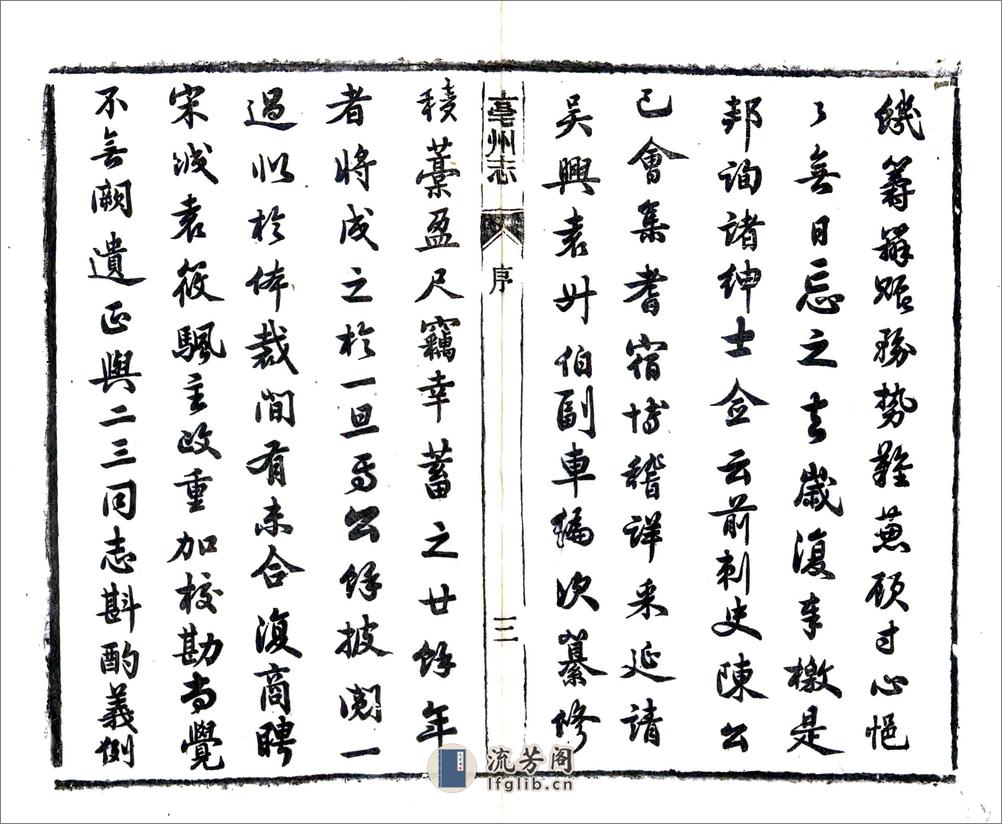 幾籌辦賑務勢難兼顧寸心悒
々無日忘之去歲復奉檄是
邦詢諸紳士僉云前刺史陳公
已會集耆宿博稽詳采延請
吳興袁伯副車編次纂修
亳州志 序 三
積藁盈尺竊幸蓄之廿餘年
者將成之於一旦焉公餘披閱一
過似於体裁間有未合復商聘
宋袁筱颿主政重加校勘尚覺
不無闕遺正與二三同志斟酌義例
流芳阁
lfglib.cn